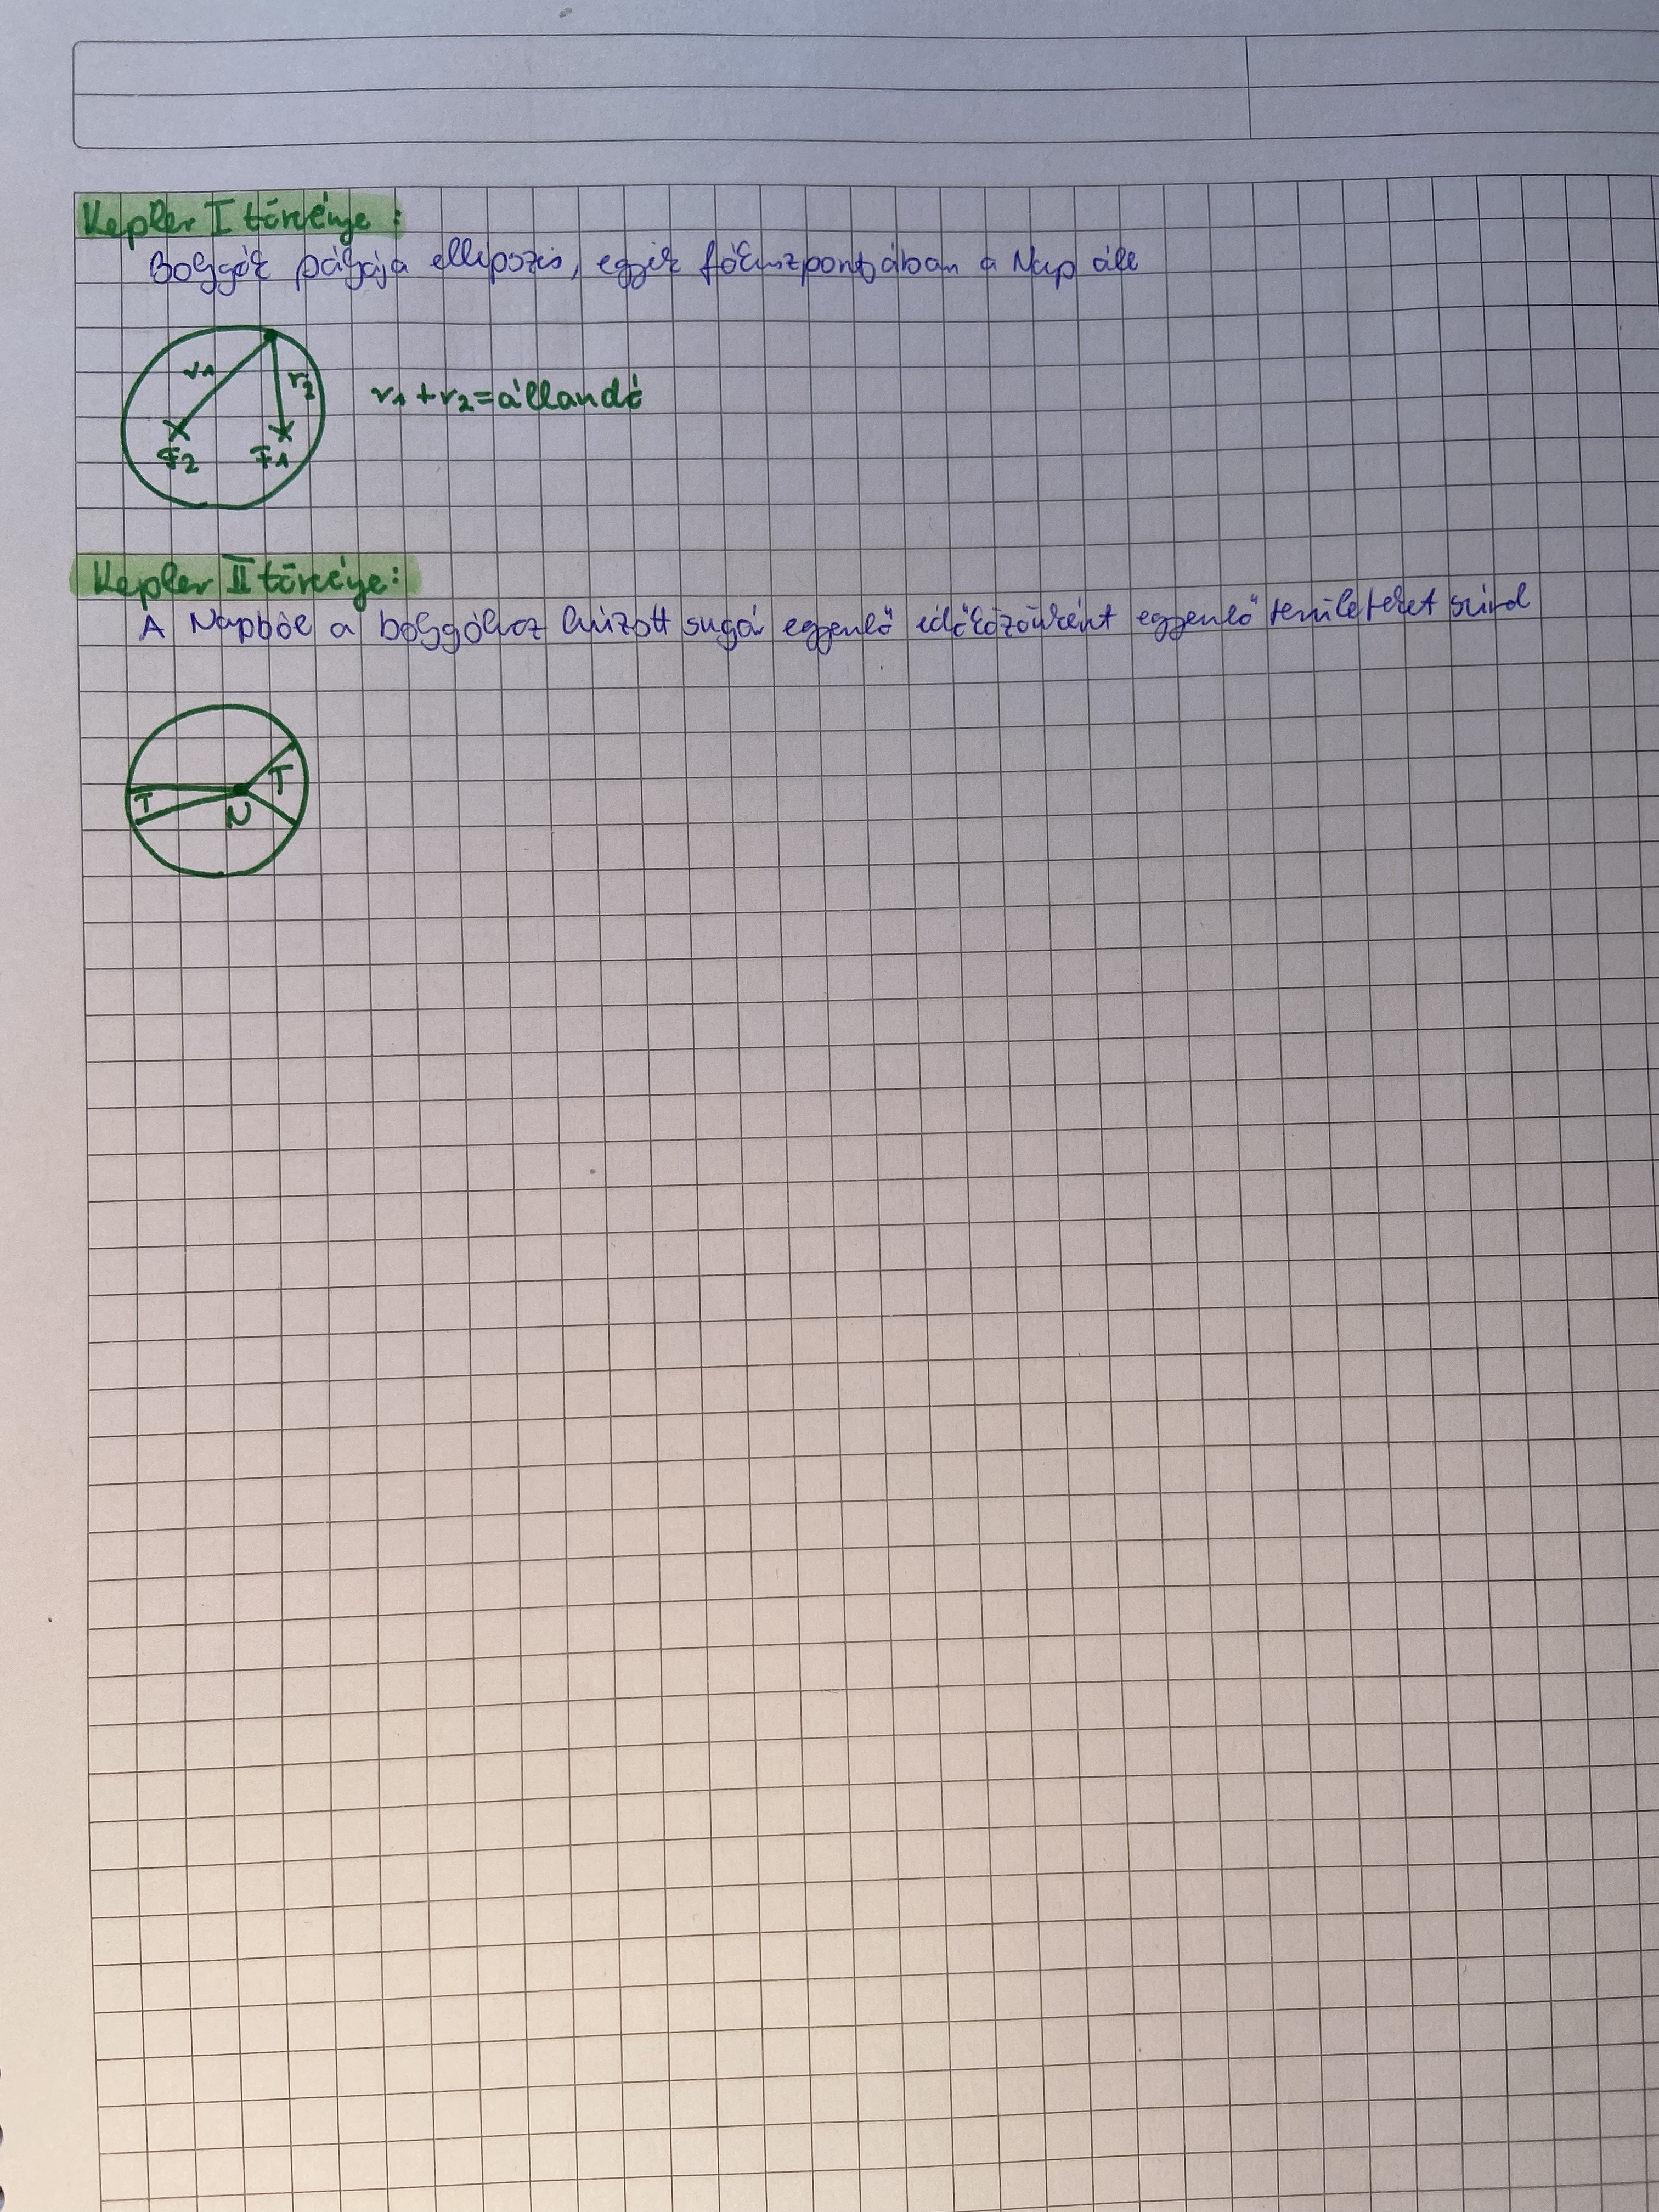 Kepler I törvénye:
Bolygók pályája ellipszis, egyik fókuszpontjában a Nap áll
r1
r2
r1+r2=állandó
F2
F1
Kepler II törvénye:
A Napból a bolygóhoz húzott sugár egyenlő időközönként egyenlő területeket súrol
T
T
N